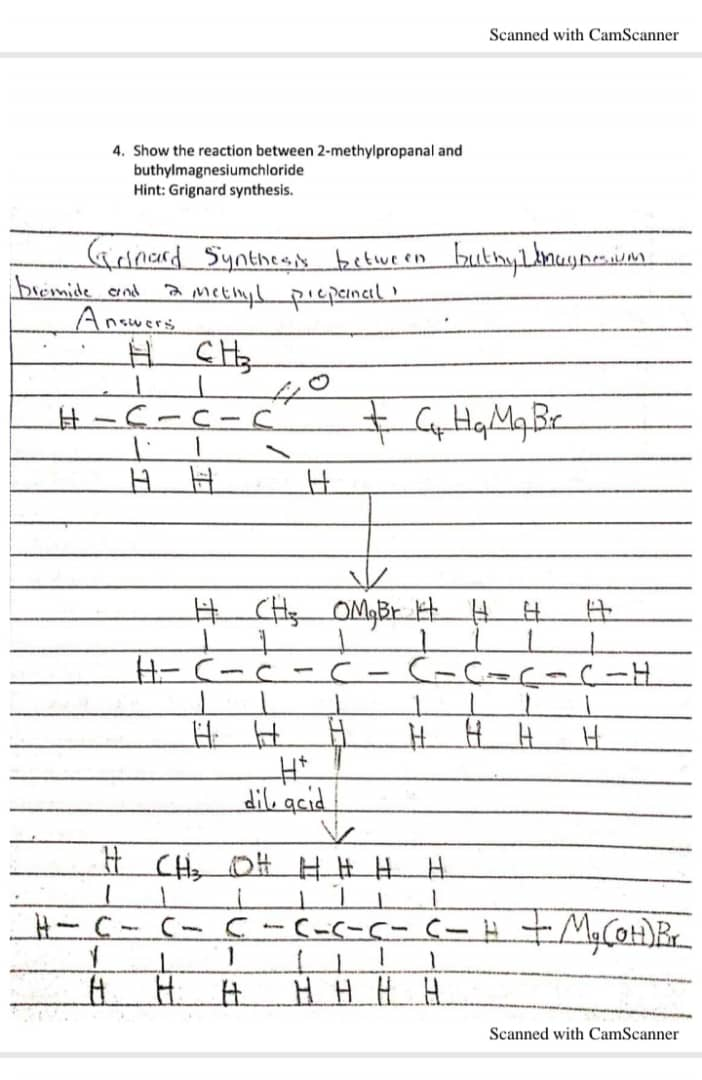 Scanned with CamScanner
4. Show the reaction between 2-methylpropanal and
buthylmagnesiumchloride
Hint: Grignard synthesis.
Synthesis between buthylmagnesium
bromide and 2 methyl propanal
Answers
H CH₃
O
H - C - C - C + C₄H₉MgBr
H H H
H CH₃ OMgBr H H H H
H - C - C - C - C - C - C - C - H
H H H H H H H
H⁺
dil. acid
H CH₃ OH H H H H
H - C - C - C - C - C - C - C - H + Mg(OH)Br
H H H H H H H
Scanned with CamScanner